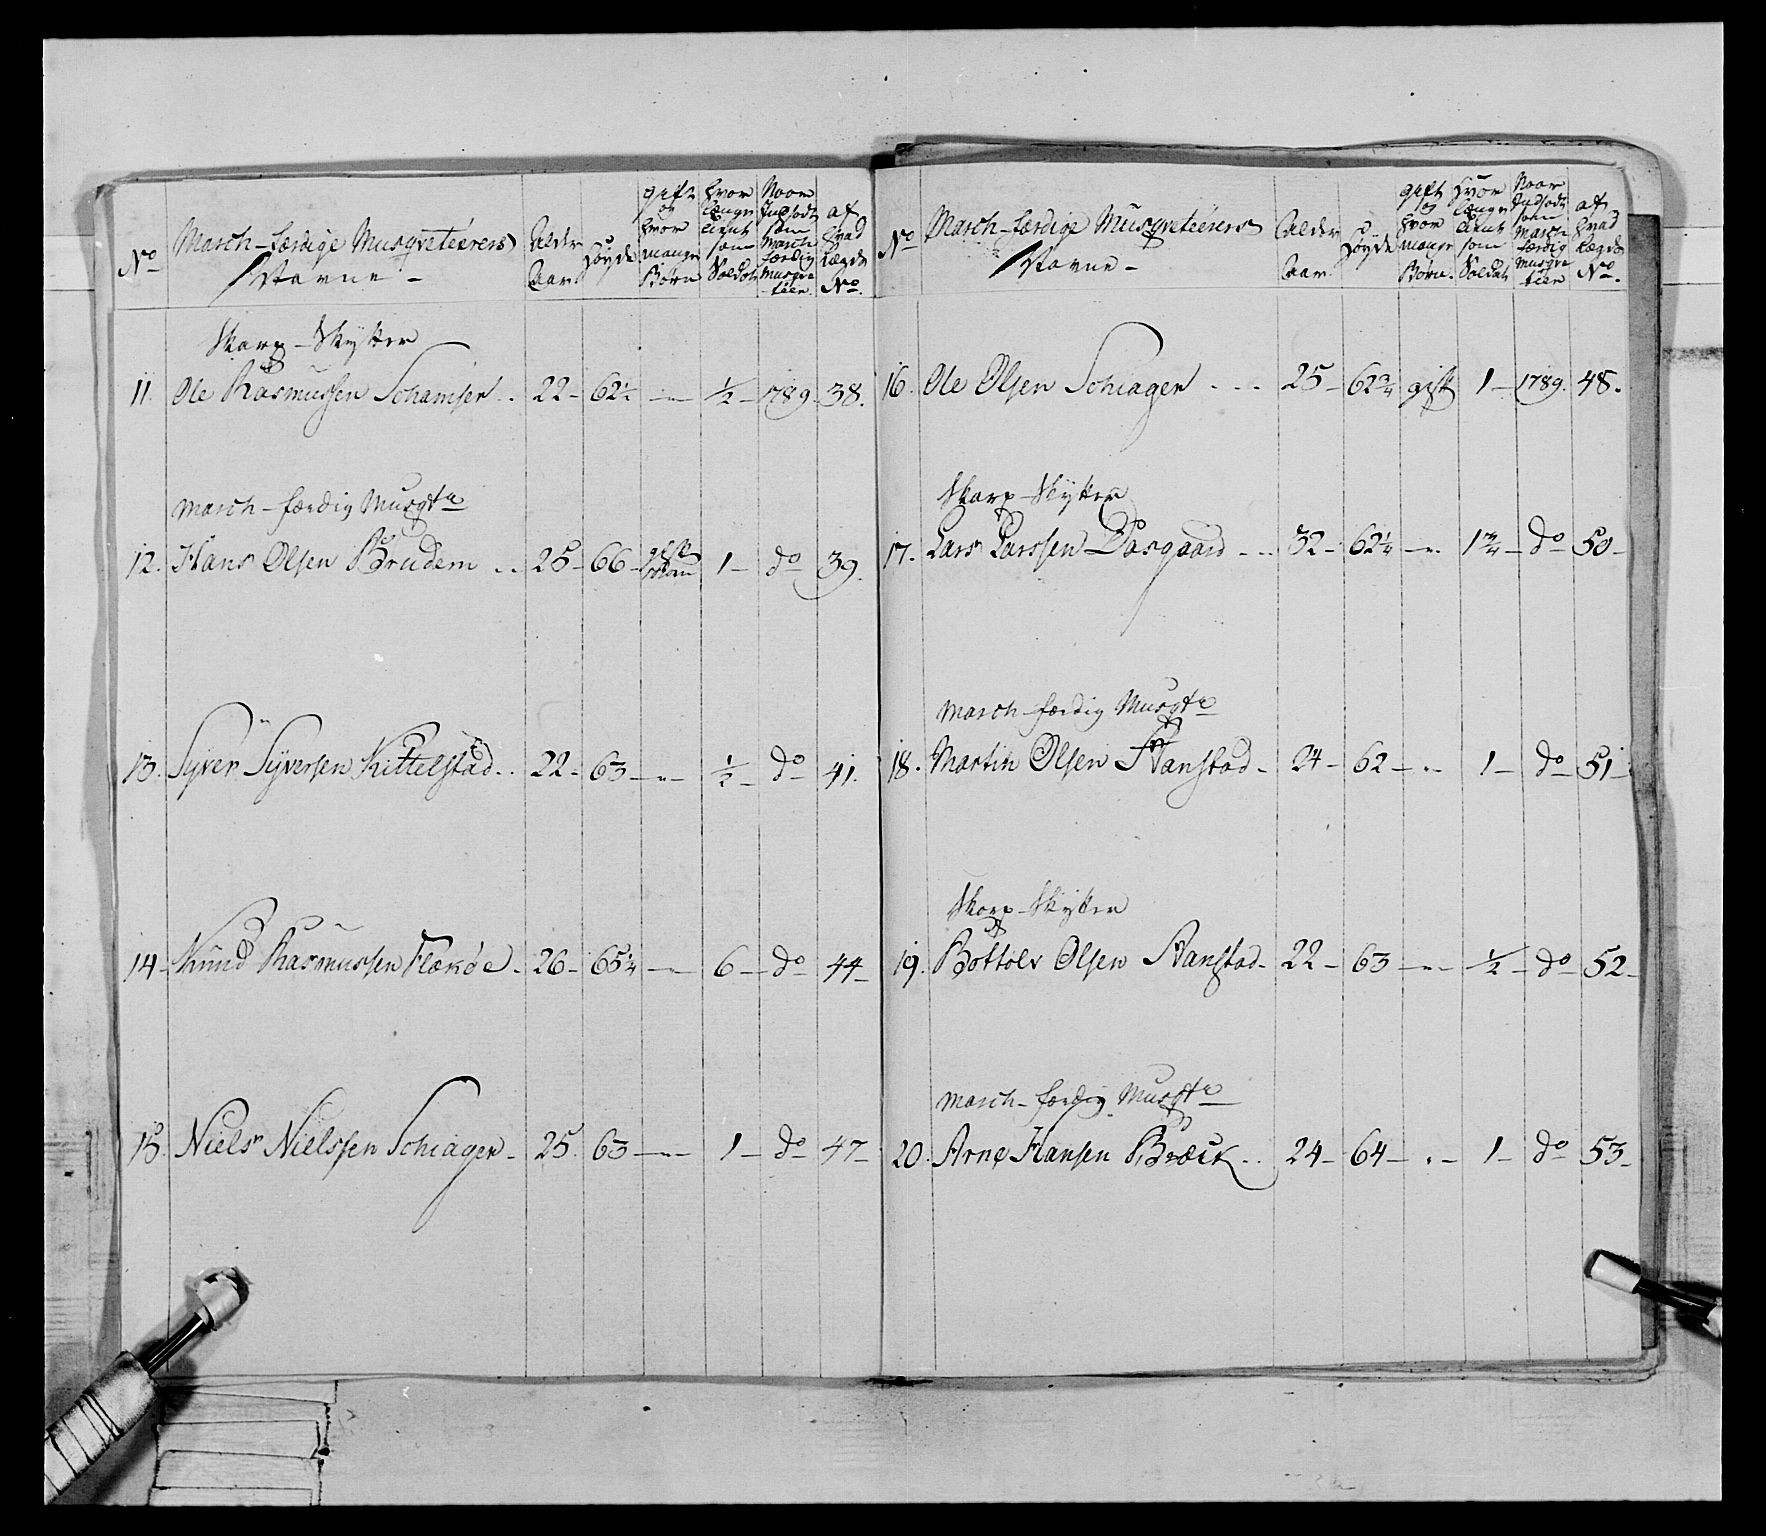 No
March-færdige Musqveteerers
Navne -
Alder
Aar.
Høyde
gift
og
hvor
mange
Børn
hvor
længe
tient
som
Soldat
Naar
Indsadt
som
March
færdig
Musqve
teer.
af
hvad
Lægds
No.
Skarp-Skytter
11. Ole Rasmussen Schamser .. 22- 62½ -"- ½- 1789. 38.
March-færdig Musqtr
12. Hans Olsen Brudem .. 25- 66- gift 1- do 39.
13. Syver Syversen Kittelstad .. 22- 63- -"- ½- do 41.
14- Knud Rasmussen Flækøe - 26- 65¼ -"- 6- do 44-
15. Niels Nielssen Schiager - 25. 63- -"- 1- do 47-
No
March-færdige Musqveteerers
Navne -
Alder
Aar.
Høyde
gift
og
hvor
mange
Børn.
Hvor
længe
tient
som
Soldat
Naar
Indsadt
som
March
færdig
Musqve
teer
af
hvad
Lægds
No.
16. Ole Olsen Schiager - - - 25- 62¾ gift 1- 1789. 48.
Skarp-Skytter
17. Lars Larssen Dasgaard - .. 32- 62¼ -"- 1¾- do 50-
March-færdig Musqtr
18. Martin Olsen Aanstad - 24- 62- -"- 1- do 51-
Skarp-Skytter
19. Bottolv Olsen Aanstad - 22- 63- -"- ½- do 52-
March-færdig Musqtr
20. Arne Hansen Bræck .. 24- 64- -"- 1- do 53-